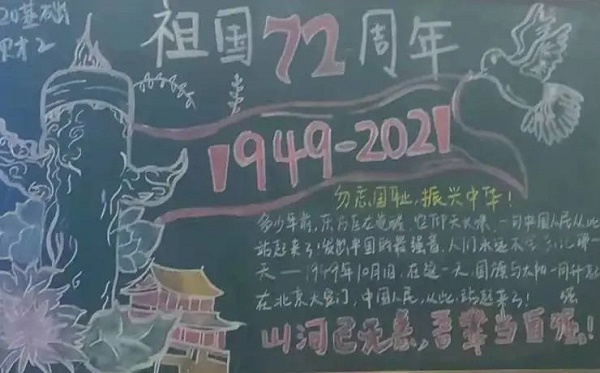 20基础
财才2
祖国72周年
1949-2021
勿忘国耻,振兴中华!
多少年前,东方巨在觉醒,一句中国人民从此
站起来了!发出中国的最强音,人们永远不忘那一
天——1949年10月1日,在这一天,国旗与太阳一同升起
在北京天安门,中国人民,从此,站起来了!
强
山河已无恙,吾辈当自强!